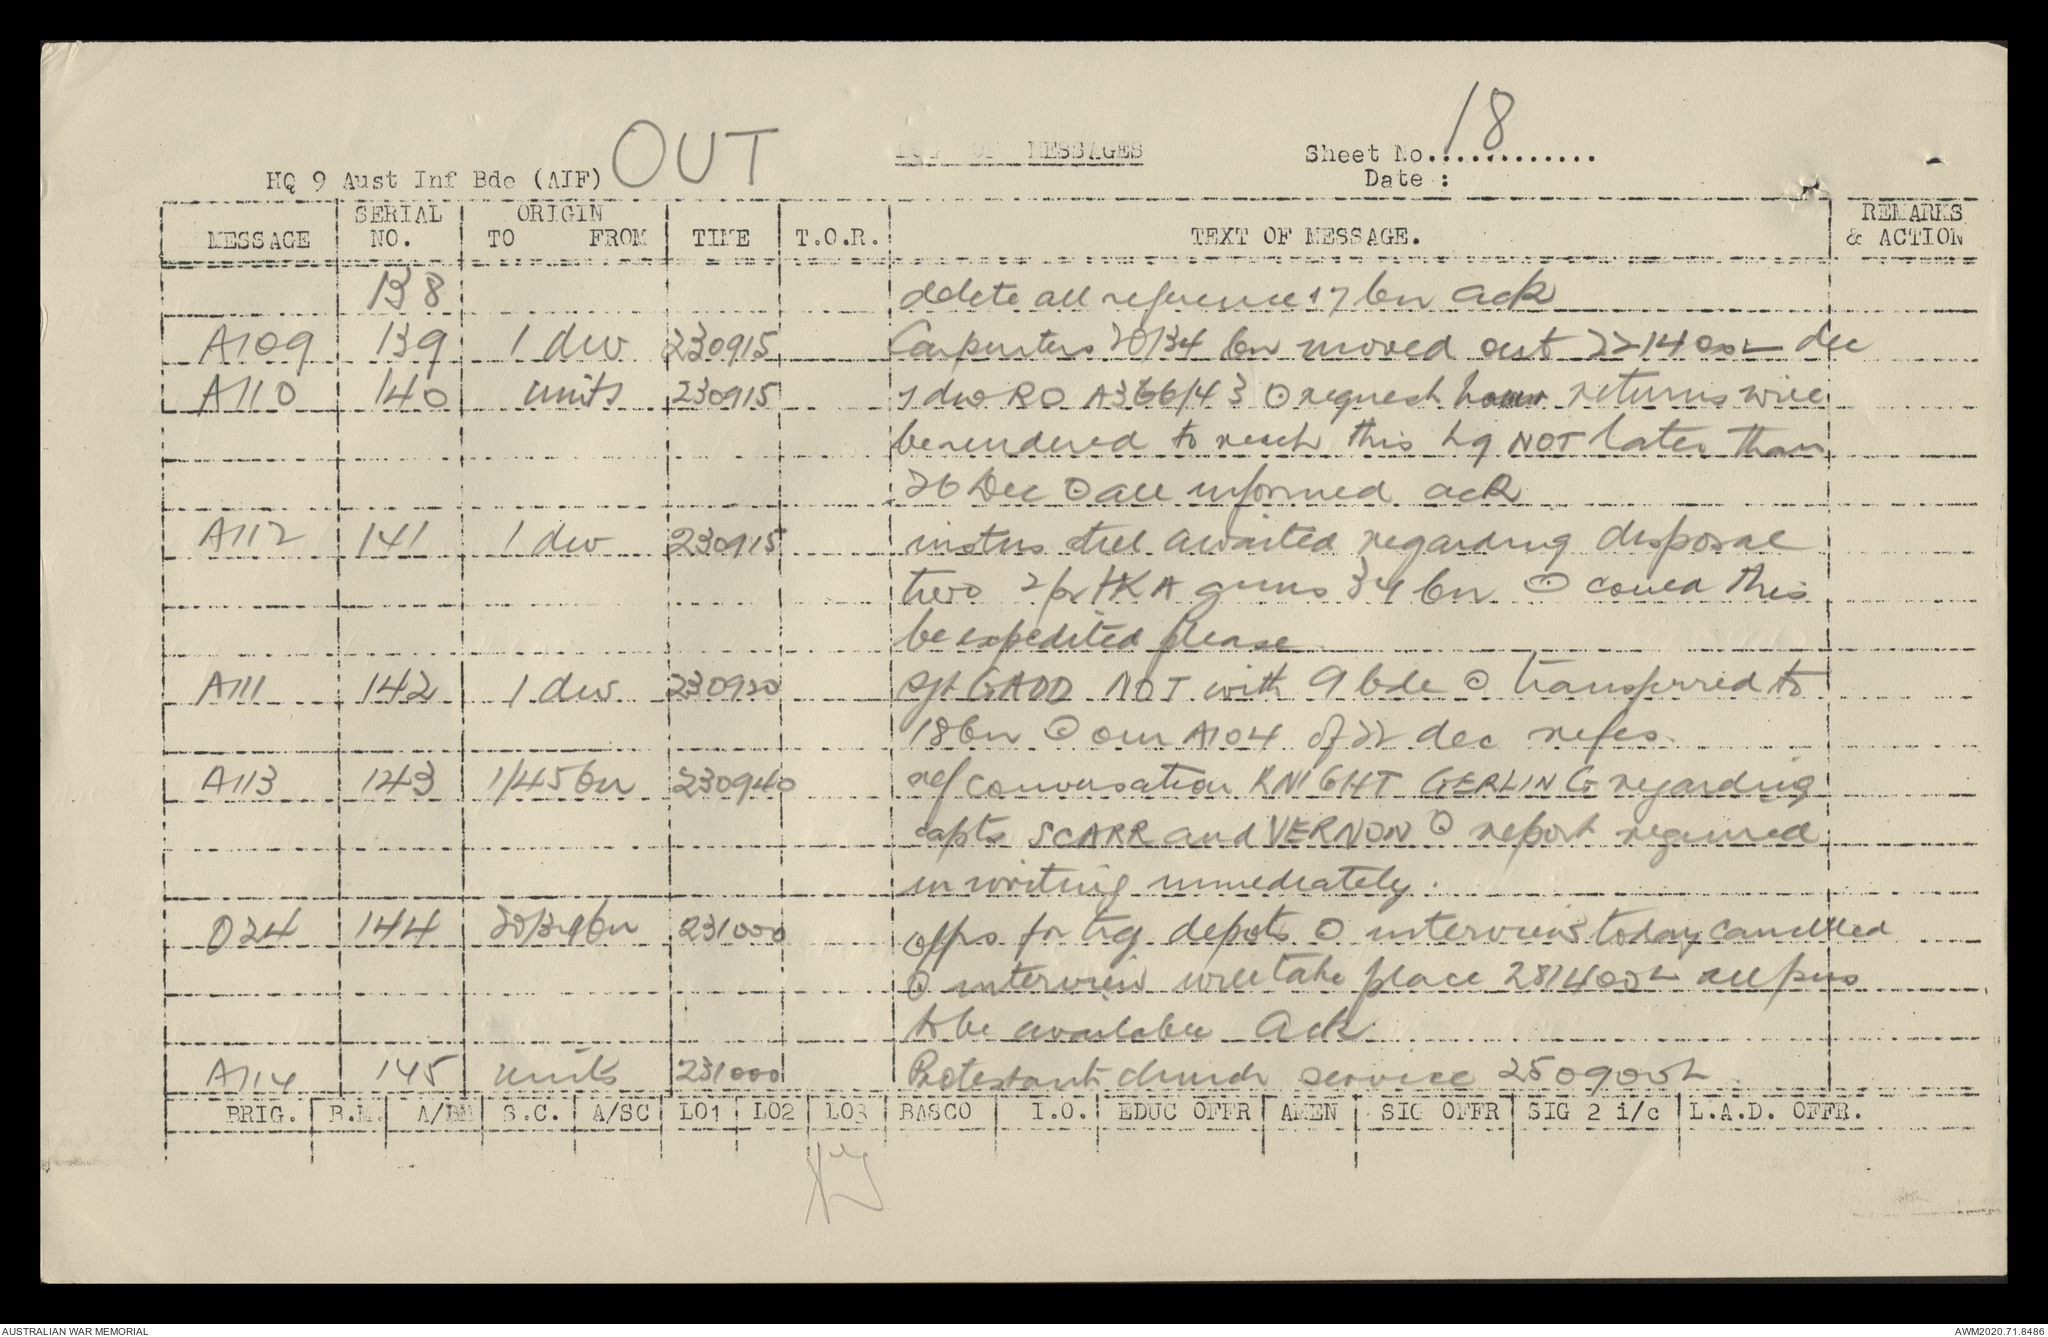 OUT
LOG OF MESSAGES
Sheet No. 18
HQ 9 Aust Inf Bde (AIF)
Date :
MESSAGE SERIAL NO. ORIGIN TO FROM TIME T.O.R. TEXT OF MESSAGE. REMARKS & ACTION
138 delete all reference 17 bn ack
A109 139 1 div 230915 Carpenters 20/34 bn moved out 221400L dec
A110 140 units 230915 1 div RO A366/43 ⊙ request returns will
be rendered to reach this hq NOT later than
26 Dec ⊙ all informed ack
A112 141 1 div 230915 instns still awaited regarding disposal
two 2 pr guns 34 bn ⊙ could this
be expedited please
A111 142 1 div 230920 Sjt GADD NOT with 9 bde ⊙ transferred to
18 bn ⊙ our A104 of 22 dec refers.
A113 143 1/45 bn 230940 ref conversation KNIGHT GERLING regarding
capts SCARR and VERNON ⊙ report required
in writing immediately.
O24 144 20/34 bn 231000 offrs for trg depots ⊙ interviews today cancelled
⊙ interview will take place 281400L all pers
to be available Ack.
A114 145 units 231000 Protestant church service 250900L
BRIG. B.M. A/BM S.C. A/SC LO1 LO2 LO3 BASCO I.O. EDUC OFFR AMEN SIG OFFR SIG 2 i/c L.A.D. OFFR.
AUSTRALIAN WAR MEMORIAL
AWM2020.71.8486